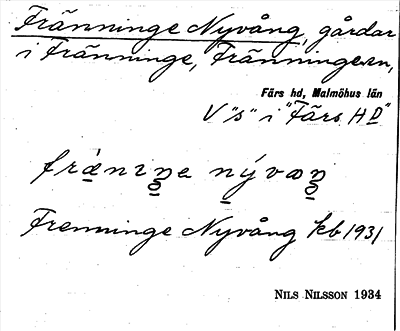 Fränninge Nyvång, gårdar
i Fränninge, Fränninge sn,
Färs hd, Malmöhus län
V "s" i "Färs HD"
fränıŋe nývaŋ
Frenninge Nyvång kb 1931
NILS NILSSON 1934